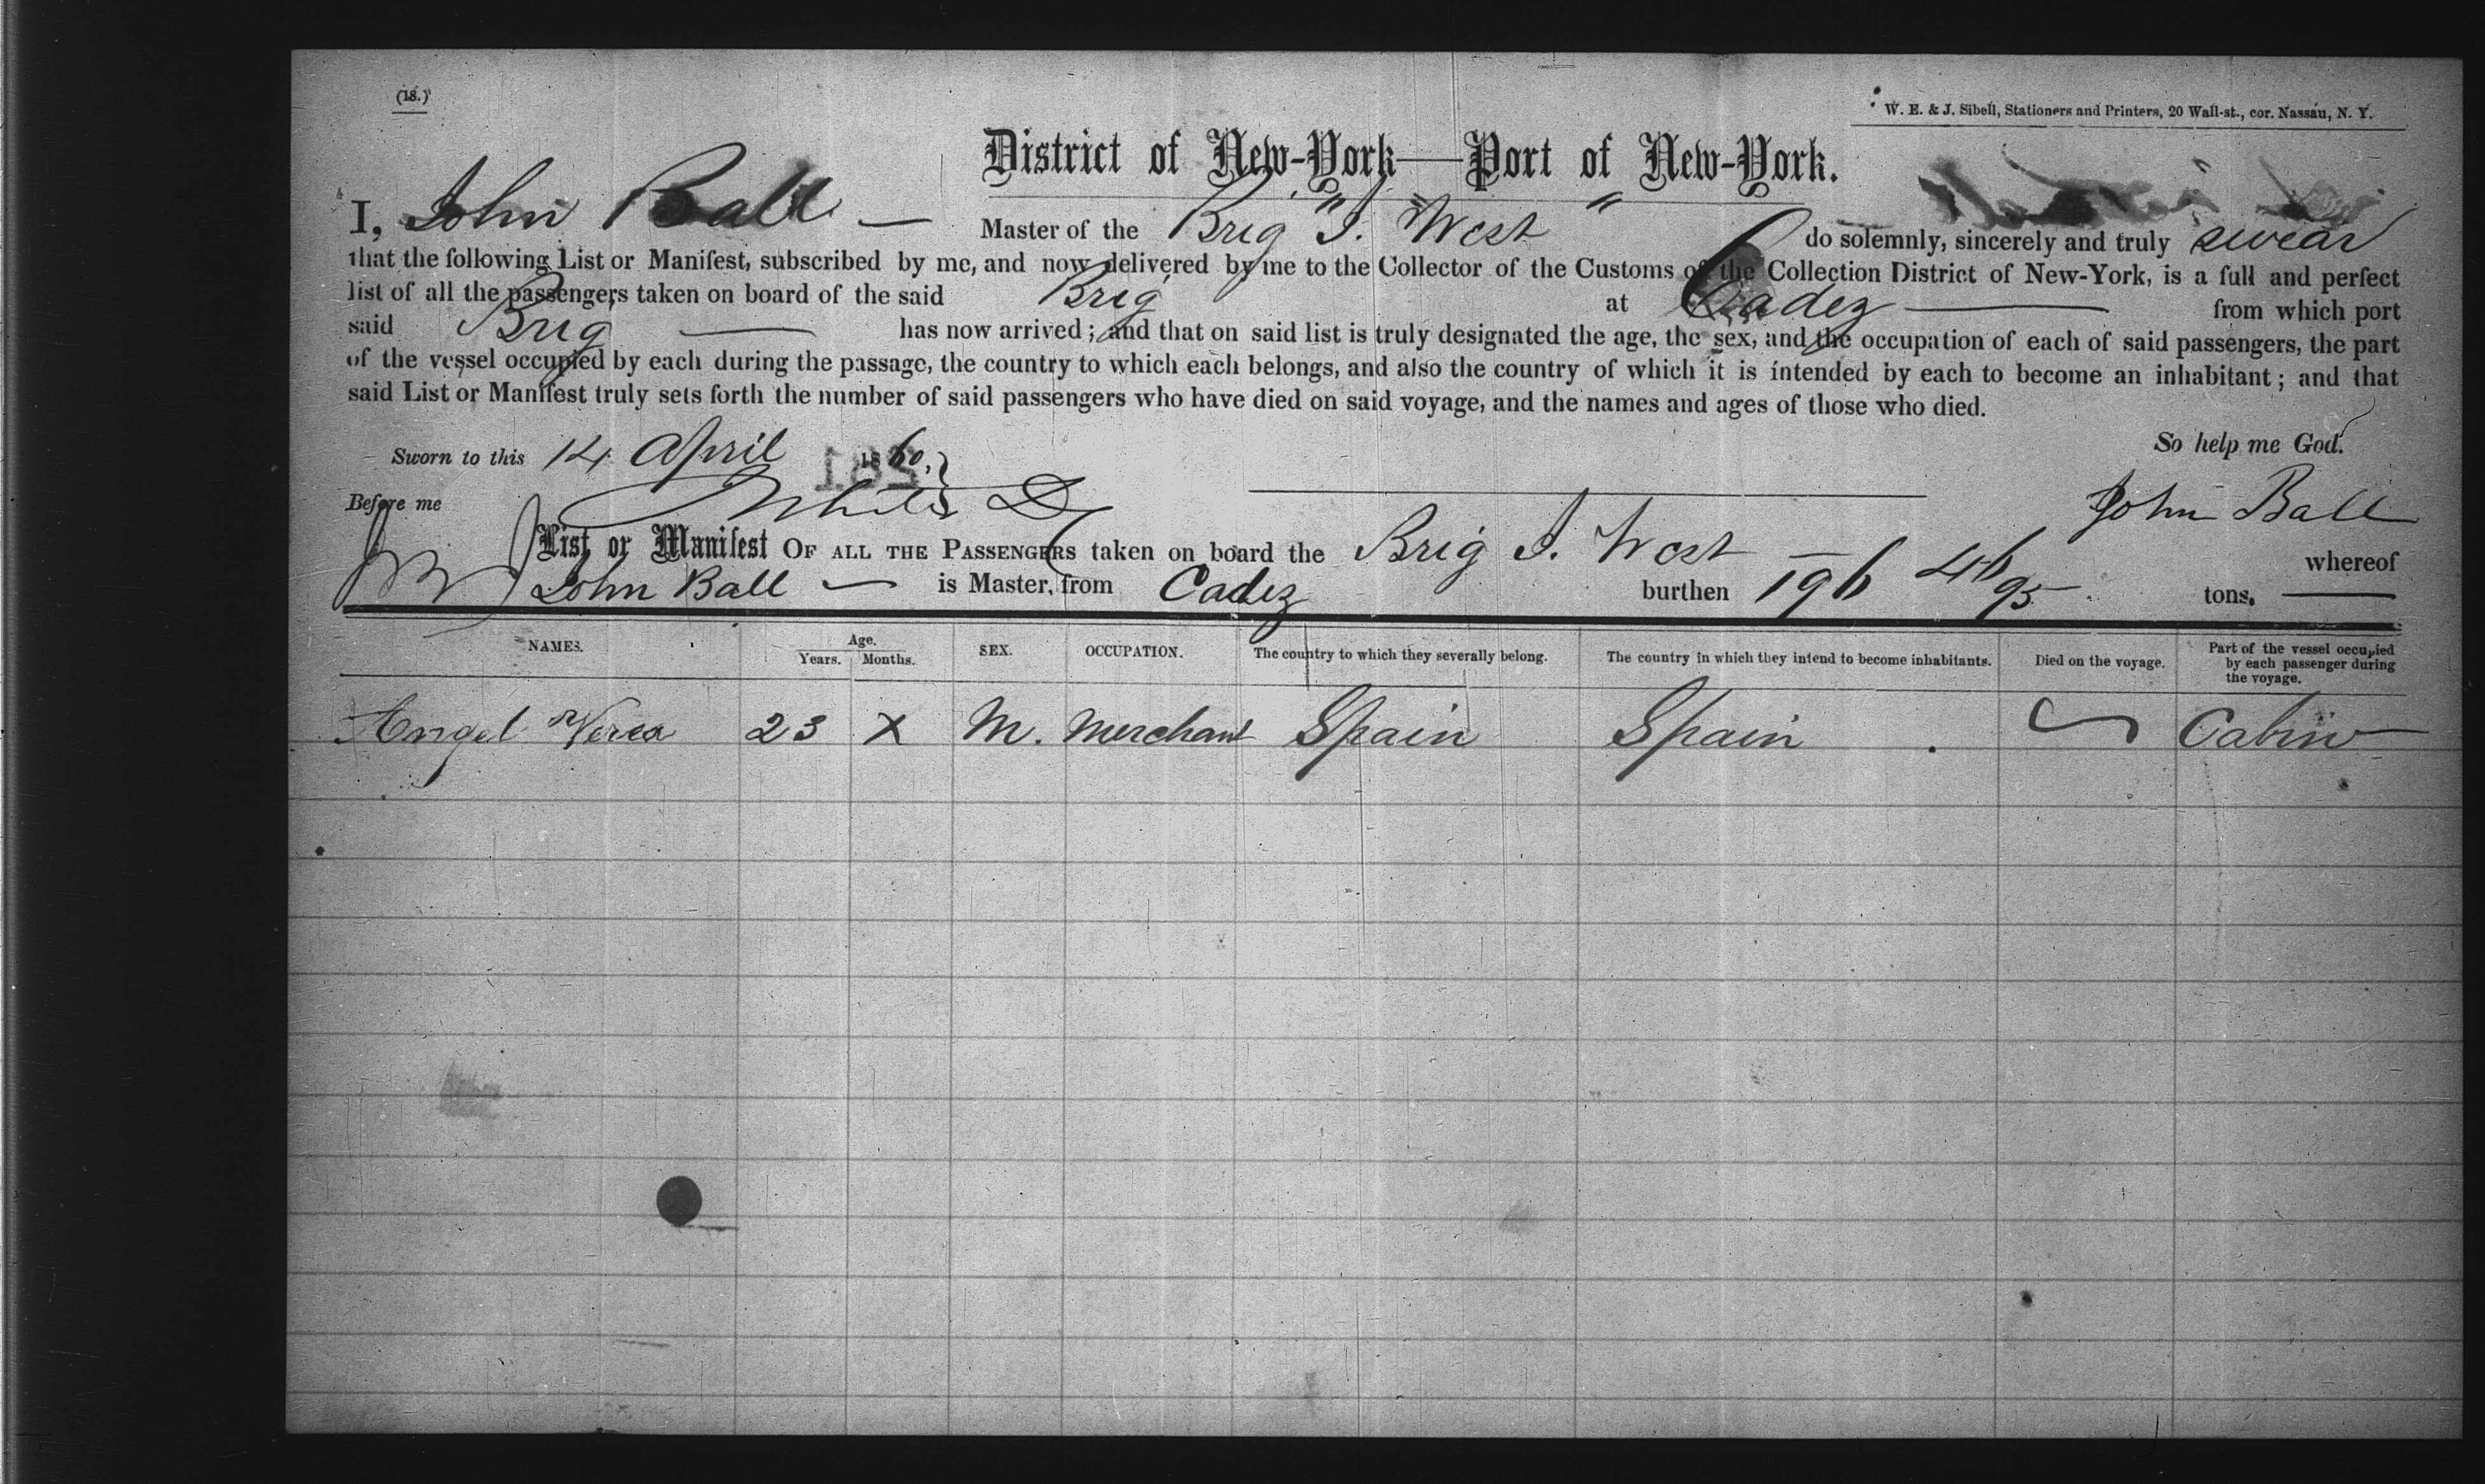 (18.)
W. E. & J. Sibell, Stationers and Printers, 20 Wall-st., cor. Nassau, N. Y.
District of New-York—Port of New-York.
I, John Ball — Master of the Brig "I. West" do solemnly, sincerely and truly swear
that the following List or Manifest, subscribed by me, and now delivered by me to the Collector of the Customs of the Collection District of New-York, is a full and perfect
list of all the passengers taken on board of the said Brig at Cadez — from which port
said Brig — has now arrived; and that on said list is truly designated the age, the sex, and the occupation of each of said passengers, the part
of the vessel occupied by each during the passage, the country to which each belongs, and also the country of which it is intended by each to become an inhabitant; and that
said List or Manifest truly sets forth the number of said passengers who have died on said voyage, and the names and ages of those who died.
Sworn to this 14 April 1860, So help me God.
Before me John Ball
List or Manifest OF ALL THE PASSENGERS taken on board the Brig I. West — whereof
John Ball — is Master, from Cadez burthen 196 46/95 tons. —
NAMES. Age. Years. Months. SEX. OCCUPATION. The country to which they severally belong. The country in which they intend to become inhabitants. Died on the voyage. Part of the vessel occupied by each passenger during the voyage.
Angel Verea 23 X M. Merchant Spain Spain Cabin